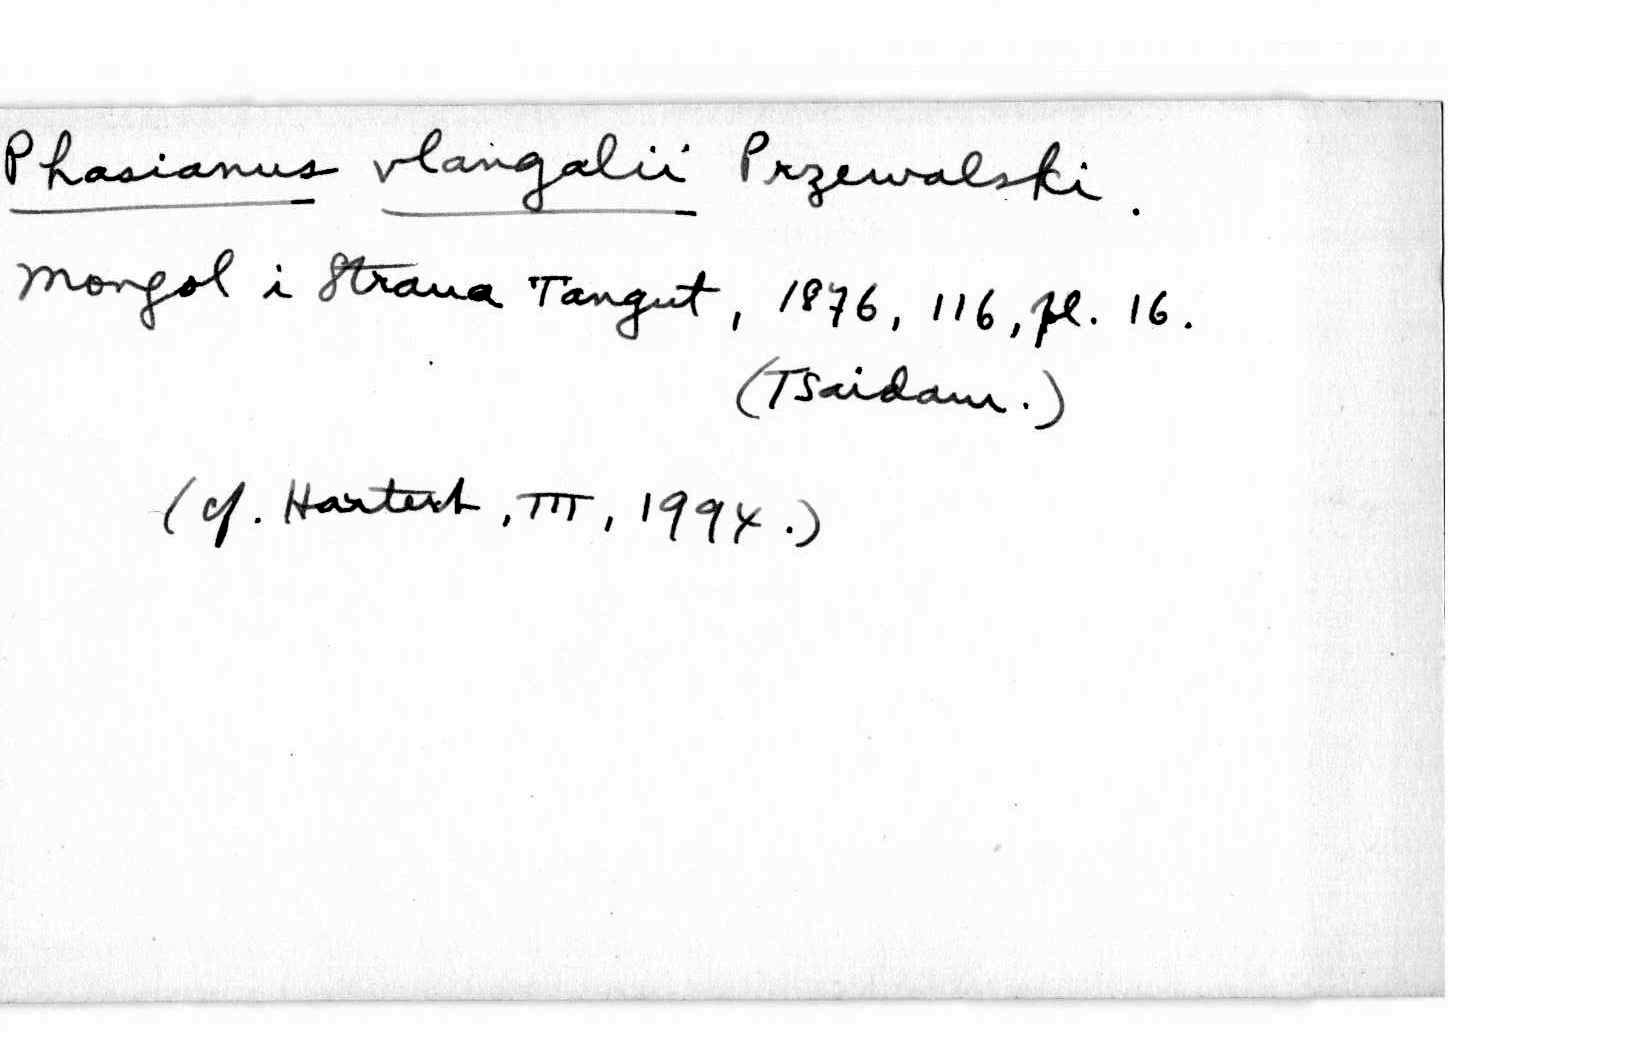 Phasianus vlangalii Przewalski.
Mongol i Strana Tangut, 1876, 116, pl. 16.
(Tsaidam.)
(cf. Hartert, III, 1994.)